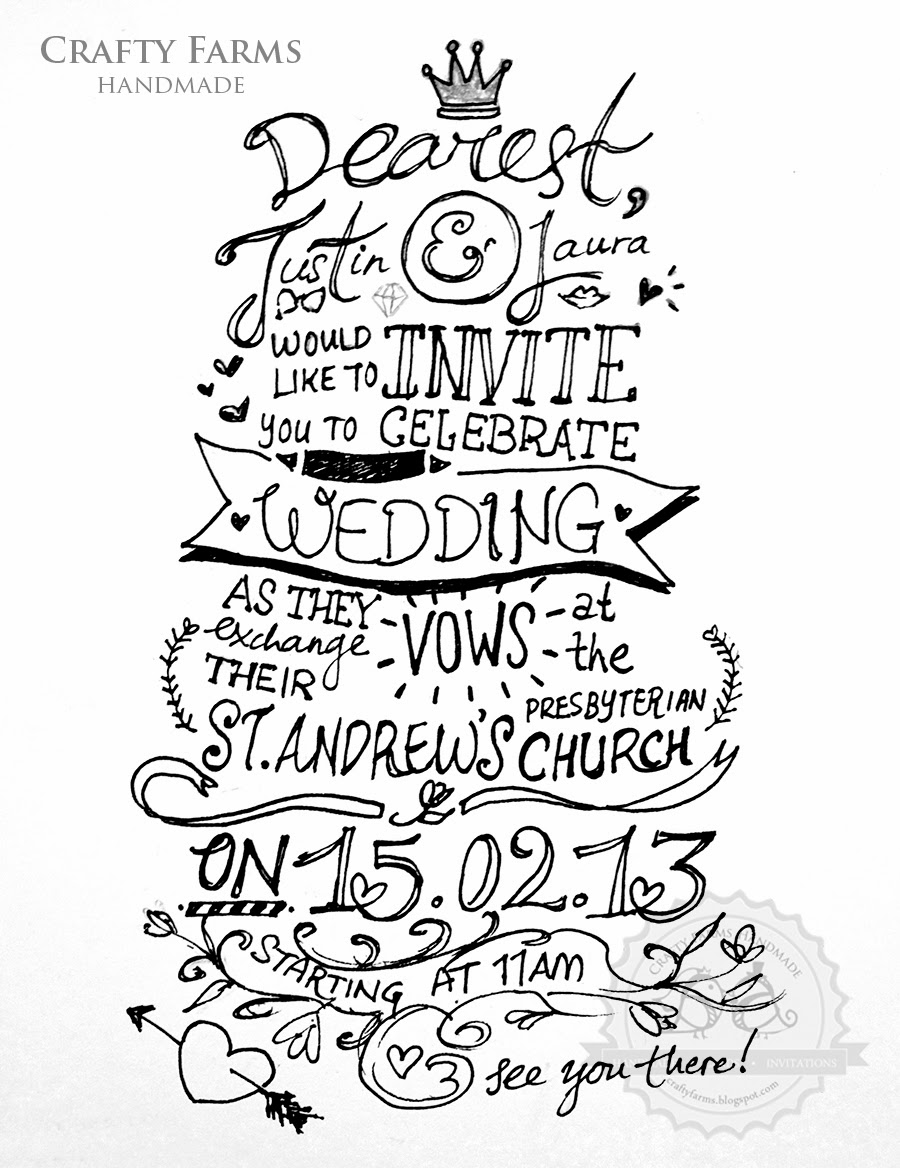 CRAFTY FARMS
HANDMADE
Dearest,
Justin & Laura
WOULD LIKE TO INVITE
YOU TO CELEBRATE
WEDDING
AS THEY exchange THEIR VOWS at the
ST. ANDREW'S PRESBYTERIAN CHURCH
ON 15.02.13
STARTING AT 11AM
see you there!
CRAFTY FARMS HANDMADE
INVITATIONS
craftyfarms.blogspot.com